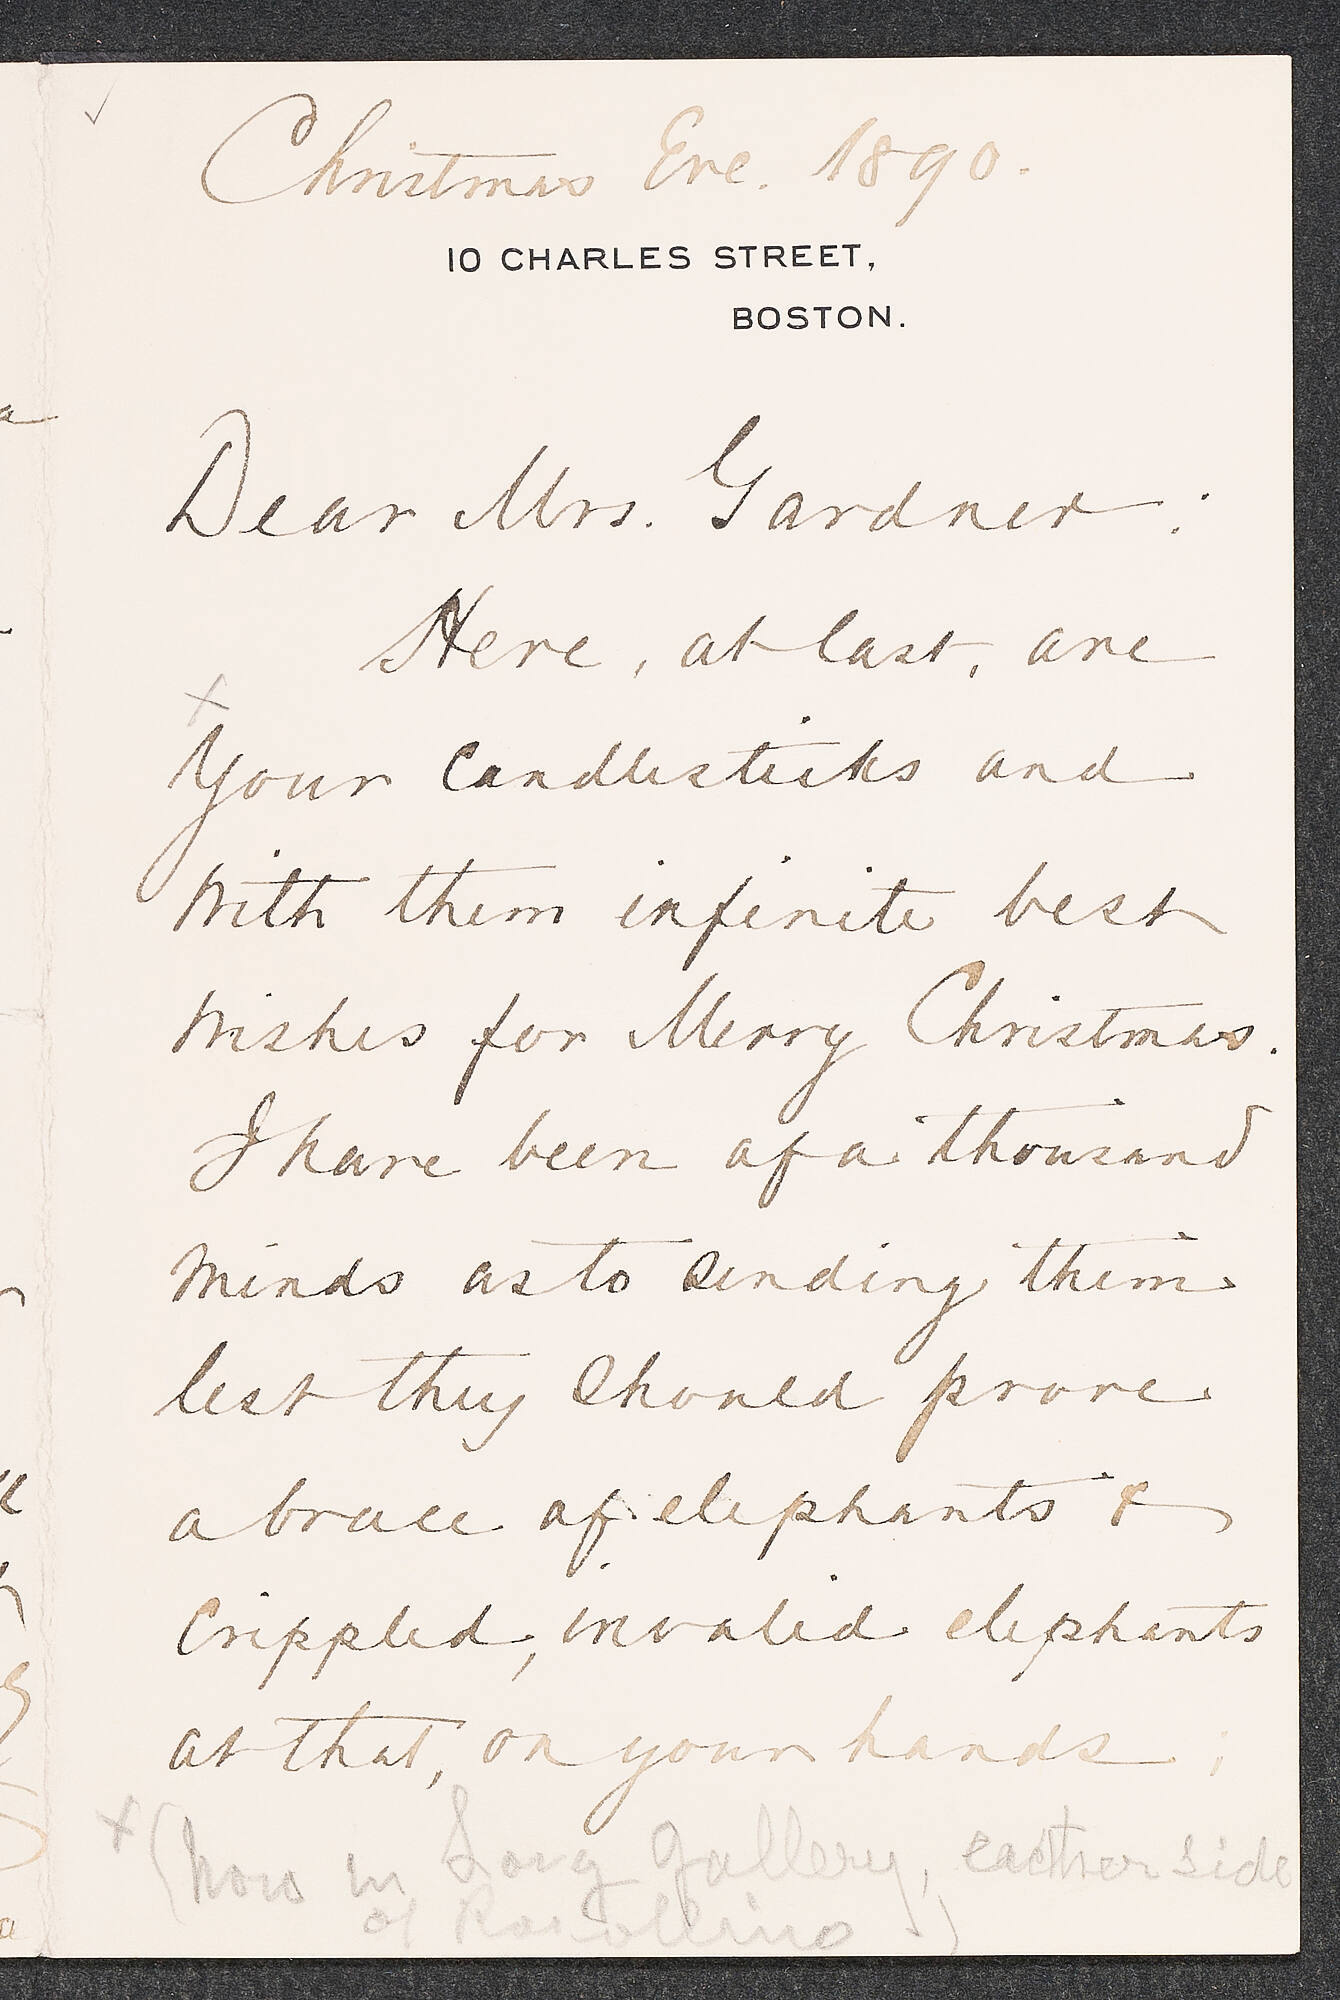 Christmas Eve. 1890.
10 CHARLES STREET,
BOSTON.
Dear Mrs. Gardner:
Here, at last, are
x
your candlesticks and
with them infinite best
wishes for Merry Christmas.
I have been of a thousand
minds as to sending them
lest they should prove
a brace of elephants &
crippled, invalid elephants
at that, on your hands;
x (now in Long Gallery, either side
of Rossellino)